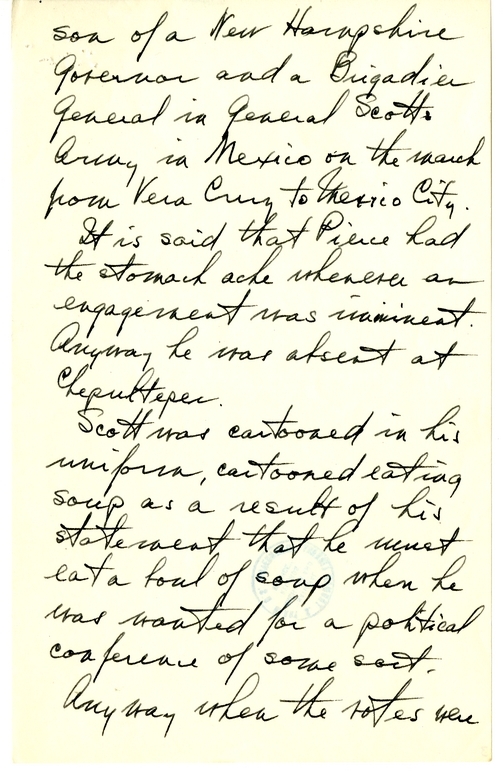 son of a New Hampshire
Governor and a Brigadier
General in General Scotts
Army in Mexico on the march
from Vera Cruz to Mexico City.
It is said that Pierce had
the stomach ache whenever an
engagement was imminent.
Anyway he was absent at
Chepultepec.
Scott was cartooned in his
uniform, cartooned eating
soup as a result of his
statement that he must
eat a boul of soup when he
was wanted for a political
conference of some sort.
Anyway when the votes were